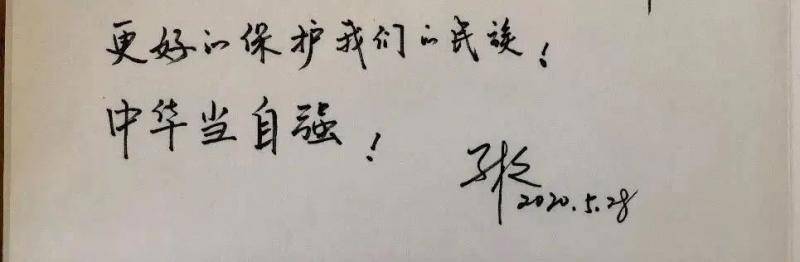 更好的保护我们的民族！
中华当自强！
2020.5.28